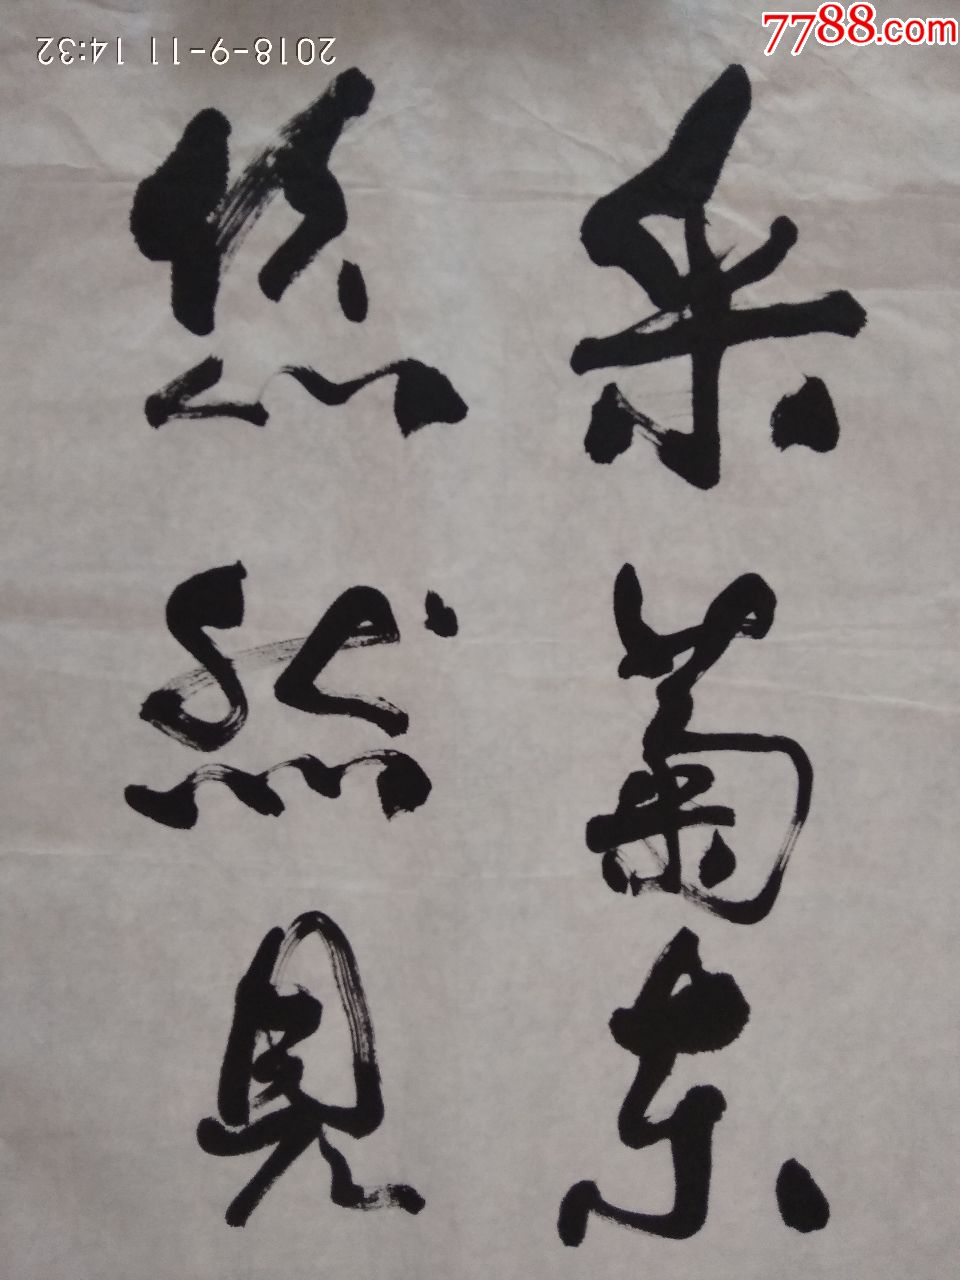 采菊东
悠然见
7788.com
2018-9-11 14:32